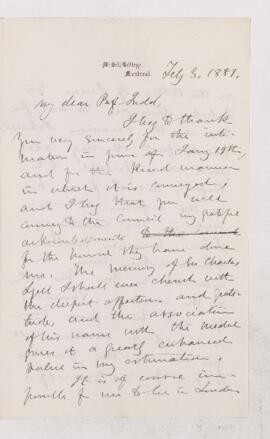 McGill College,
Montreal.
Feby 3, 1881.
My dear Prof Judd,
I beg to thank
you very sincerely for the inti-
mation in yours of Jany 19th,
and for the kind manner
in which it is conveyed,
and I beg that you will
convey to the Council my grateful
acknowledgements
for the honour they have done
me. The memory of Sir Charles
Lyell I shall ever cherish with
the deepest affection and grati-
tude, and the association
of his name with the medal
gives it a greatly enhanced
value in my estimation.
It is of course im-
possible for me to be in London